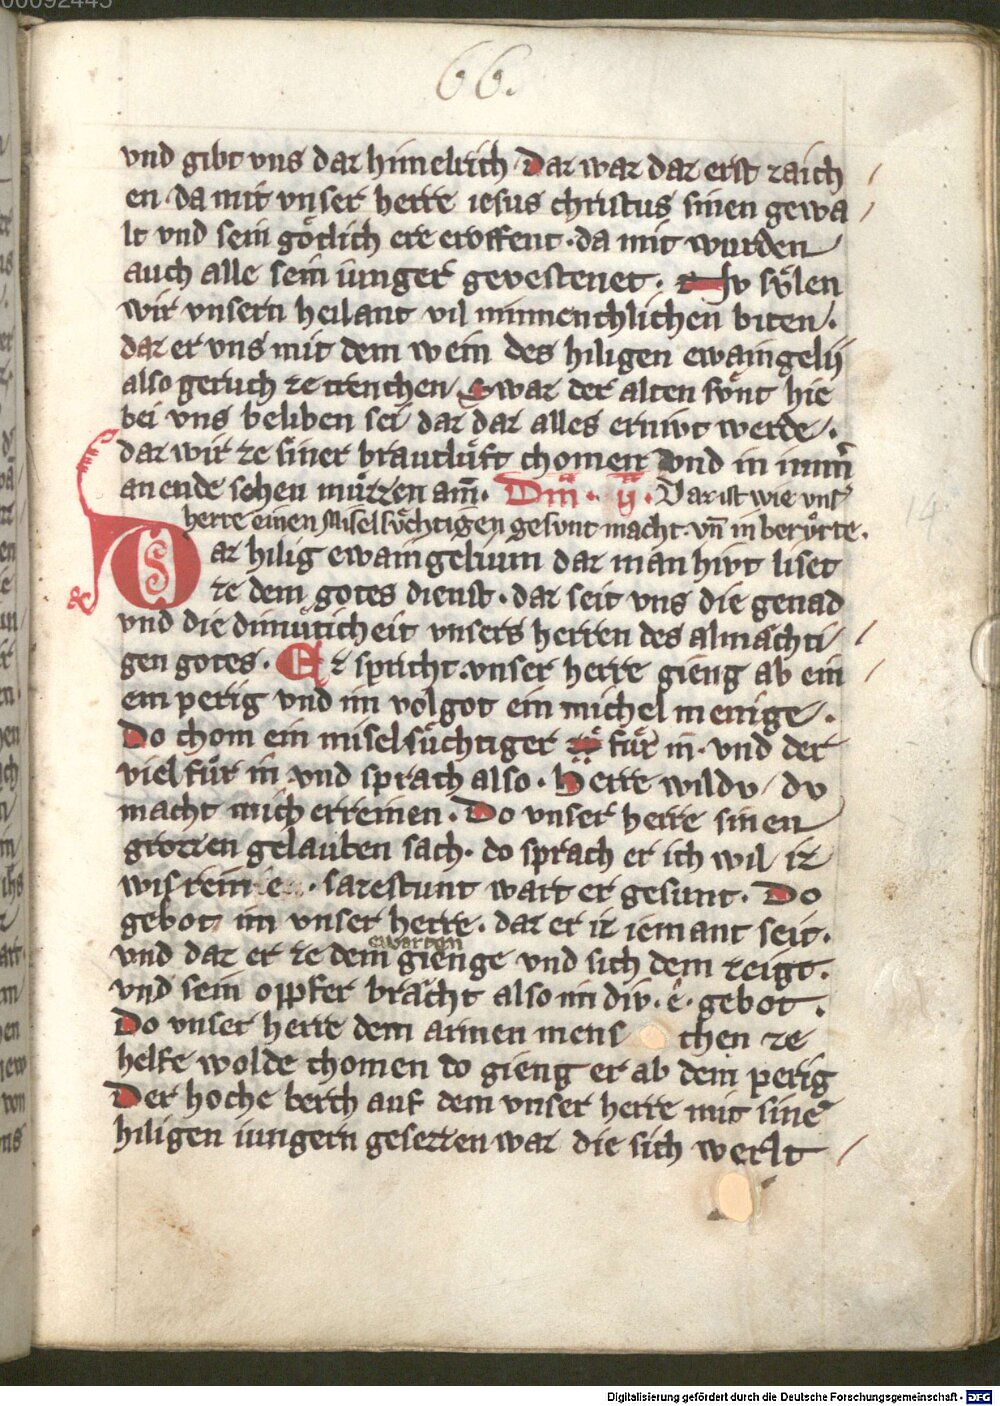 66.
vnd gibt vns daz himelrich · Daz waz daz erst zaich
en · da mit vnser herre iesus christus sinen gewa
lt vnd sein götlich ere eroffent · da mit wurden
auch alle sein iunger gevestenet · Nv sv̊len
wir vnsern heilant vil minnenchlichen biten ·
daz er vns mit dem wein des hiligen ewaingelij
also geruch ze trenchen · Swaz der alten svnt hie
bei vns beliben sei daz daz alles erniwt werde ·
daz wir ze siner brautlűft chomen vnd in imm̄
an ende sehen mu̔zzen am̄ · Dm̄ · ij · Daz ist wie vnser
herre einen miselsv̊chtigen gesunt macht · vn̄ in berv̊rte ·
Daz hilig ewaingelium daz man hivt liset
ze dem gotes dienst · daz seit vns die genad
vnd die dimůticheit vnsers herren des almächti
gen gotes · Er spricht · vnser herre gieng ab ein
em perig vnd im volgot ein michel menige ·
Do chom ein miselsüchtiger für in · vnd der
viel für in vnd sprach also · Herre wildv / dv
macht mich erreinen · Do vnser herre sinen
grozzen gelauben sach · do sprach er ich wil iz
wis rein · sarestunt wart er gesunt · Do
gebot im vnser herre · daz er iz iemant seit ·
ewarten
vnd daz er ze dem gienge vnd sich dem zeigt ·
vnd sein opfer brächt als im div · e · gebot ·
Do vnser herre dem armen mens chen ze
helfe wolde chomen do gieng er ab dem perig
Der hoche berch auf dem vnser herre mit sinē
hiligen iungern gesezzen waz die sich werlt
14
Digitalisierung gefördert durch die Deutsche Forschungsgemeinschaft - DFG